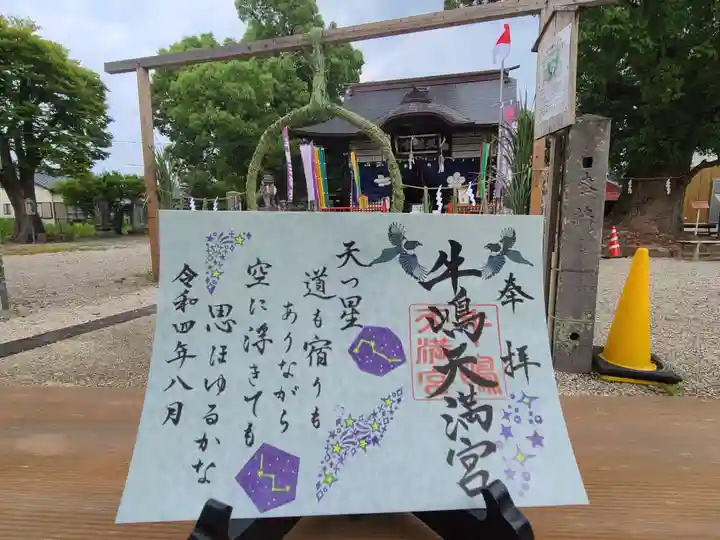 奉拝
牛嶋天満宮
天つ星
道も宿りも
ありながら
空に浮きても
思ほゆるかな
令和四年八月